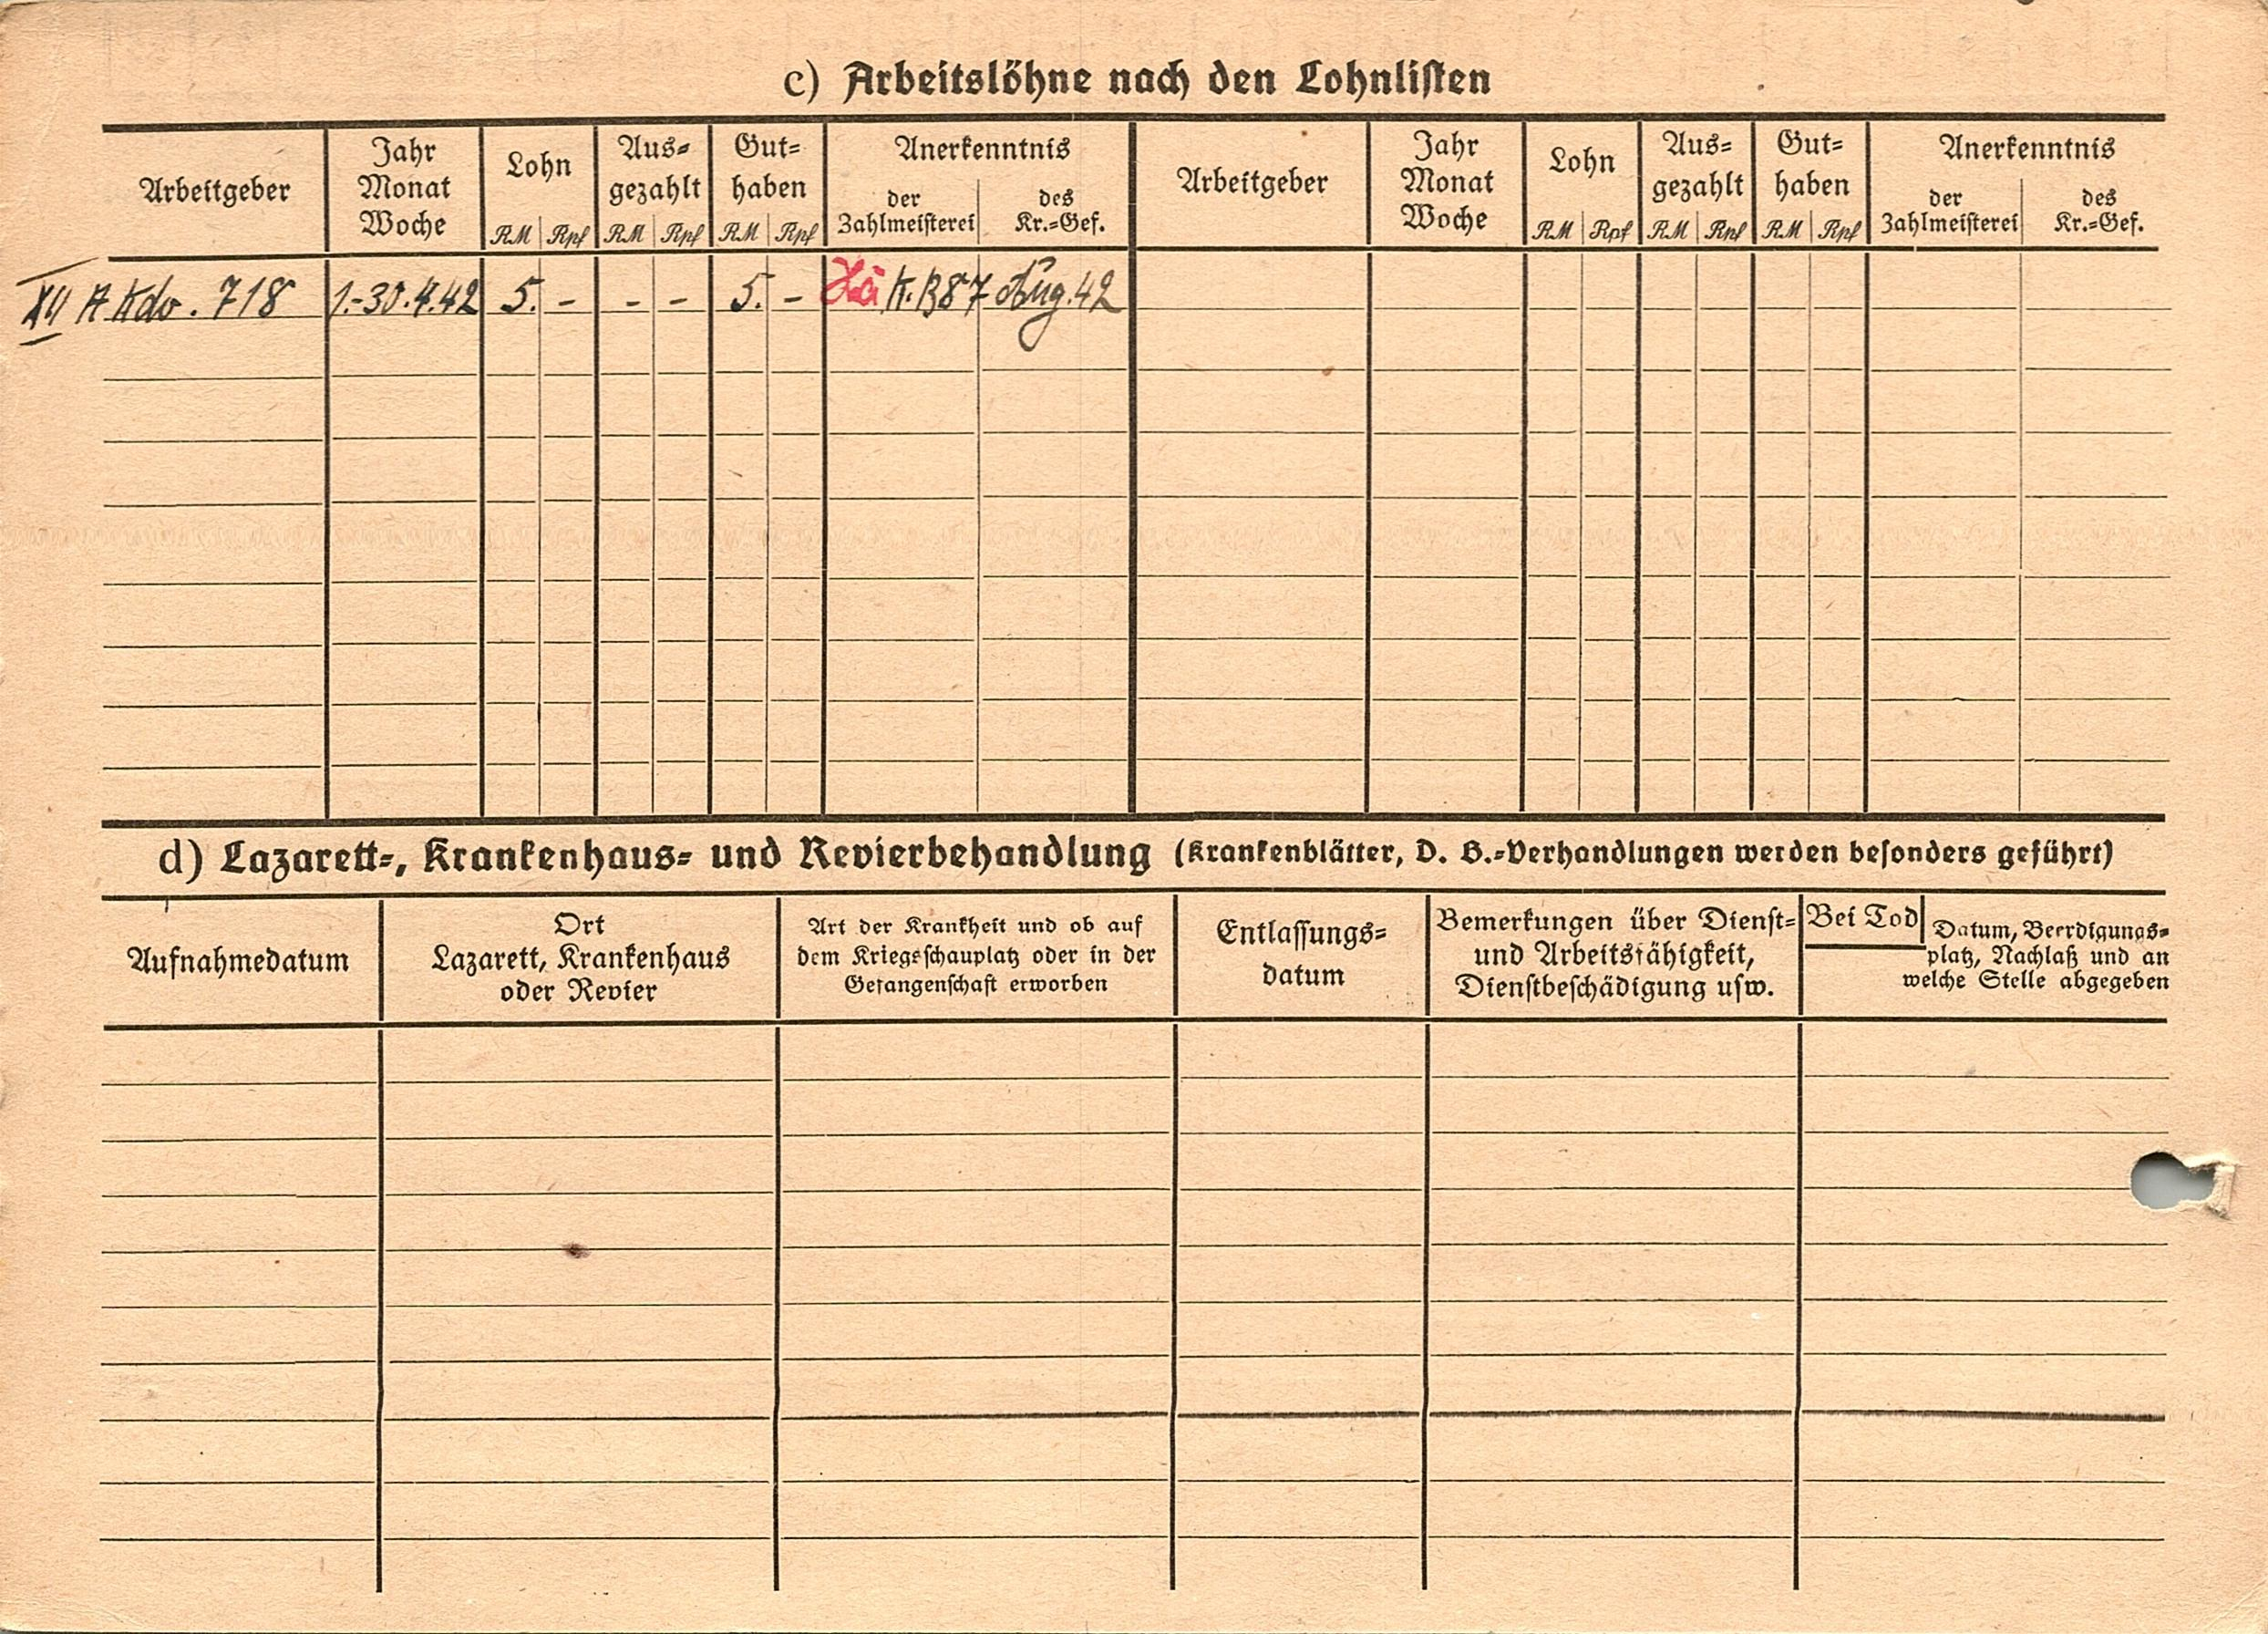 c) Arbeitslöhne nach den Lohnlisten
Arbeitgeber
Jahr
Monat
Woche
Lohn
RM Rpf
Aus-
gezahlt
RM Rpf
Gut-
haben
RM Rpf
Anerkenntnis
der
Zahlmeisterei
des
Kr.-Gef.
Arbeitgeber
Jahr
Monat
Woche
Lohn
RM Rpf
Aus-
gezahlt
RM Rpf
Gut-
haben
RM Rpf
Anerkenntnis
der
Zahlmeisterei
des
Kr.-Gef.
A Kdo. 718 1.-30.4.42 5. - - - 5. - K. B87 Aug. 42
d) Lazarett-, Krankenhaus- und Revierbehandlung (Krankenblätter, D. B.-Verhandlungen werden besonders geführt)
Aufnahmedatum
Ort
Lazarett, Krankenhaus
oder Revier
Art der Krankheit und ob auf
dem Kriegsschauplatz oder in der
Gefangenschaft erworben
Entlassungs-
datum
Bemerkungen über Dienst-
und Arbeitsfähigkeit,
Dienstbeschädigung usw.
Bei Tod
Datum, Beerdigungs-
platz, Nachlaß und an
welche Stelle abgegeben